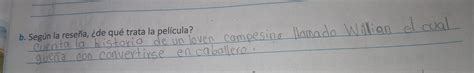 b. Según la reseña, ¿de qué trata la película?
cuenta la historia de un joven campesino llamado Willian el cual
sueña con convertirse en caballero.